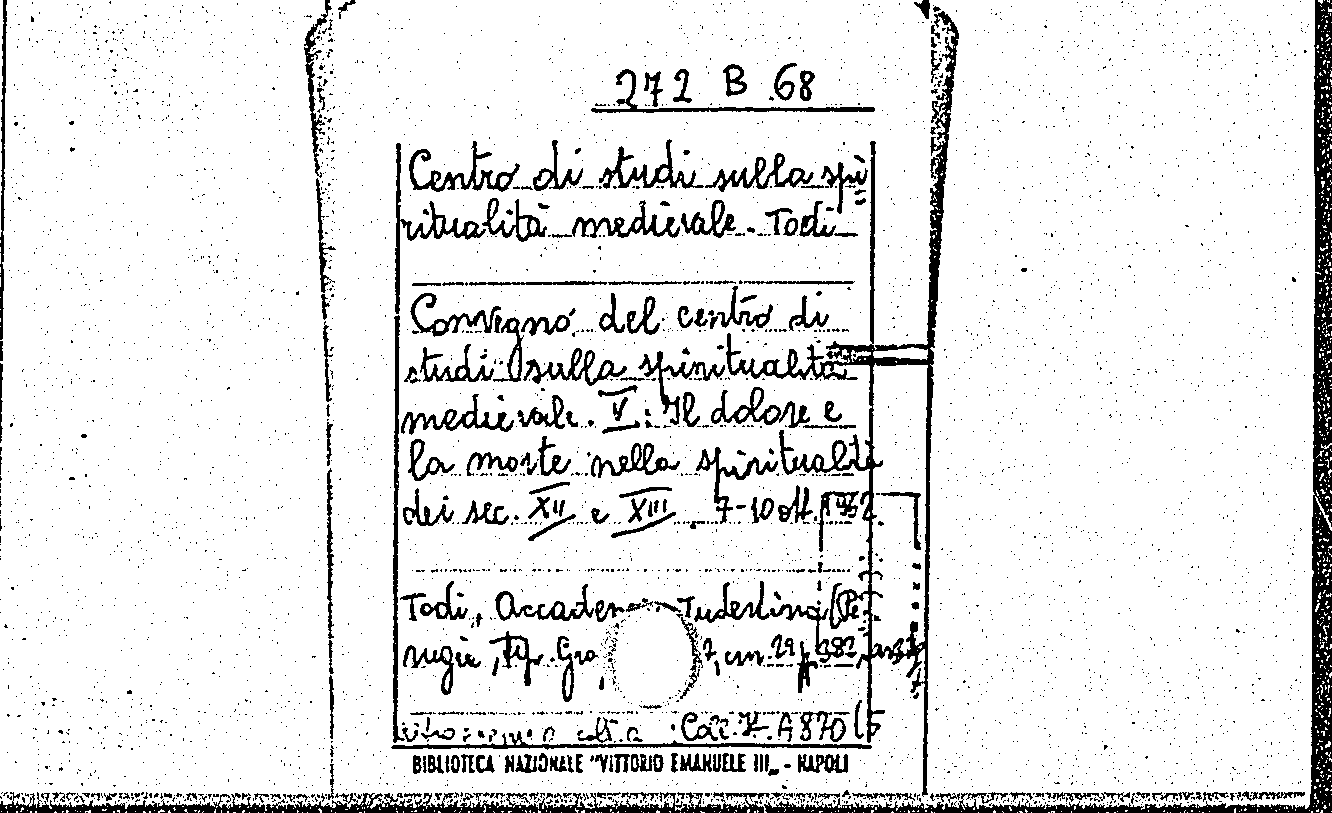 272 B 68
Centro di studi sulla spi
ritualità medievale. Todi
Convegno del centro di
studi sulla spiritualità
medievale. V: Il dolore e
la morte nella spiritualità
dei sec. XII e XIII. 7-10 ott. 1962.
Todi, Accademia Tudertina (Pe
rugia, Tip. Gra 7, cm. 29, 382,
Coll. A 870 (5
BIBLIOTECA NAZIONALE "VITTORIO EMANUELE III„ - NAPOLI